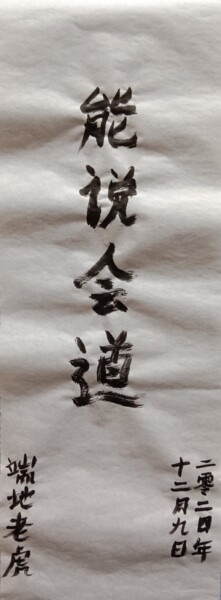 能说会道
二零二四年
十二月九日
端地老虎